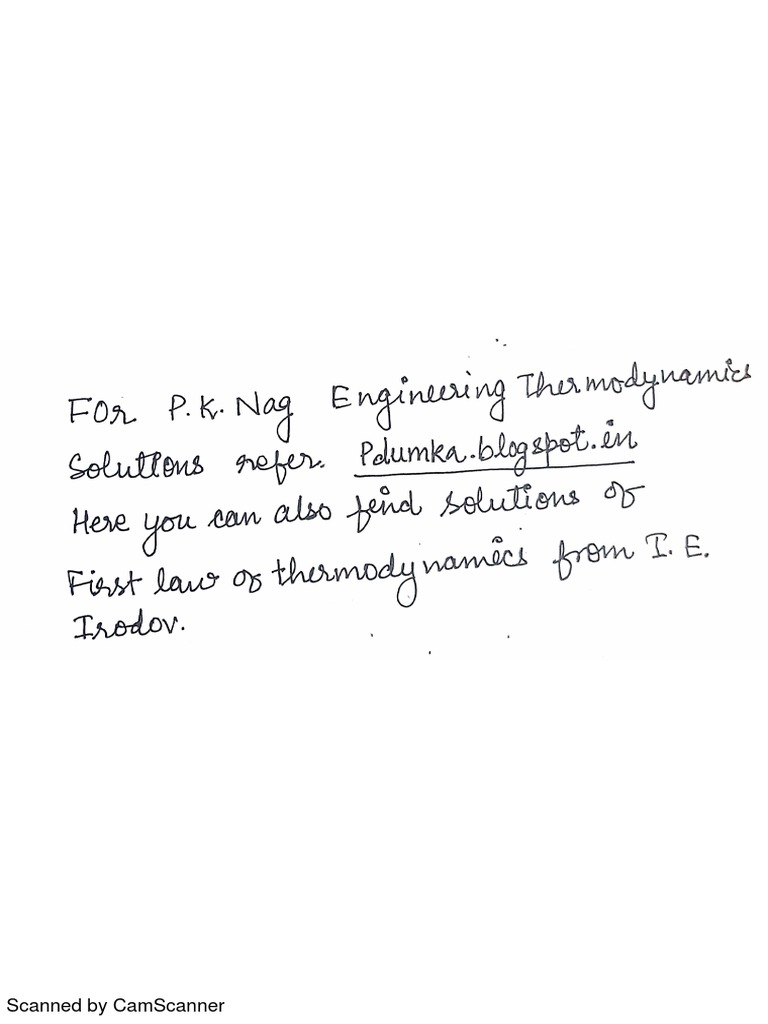 For P.K. Nag Engineering Thermodynamics
Solutions refer. Pdumka.blogspot.in
Here you can also find solutions of
First law of thermodynamics from I. E.
Irodov.
Scanned by CamScanner